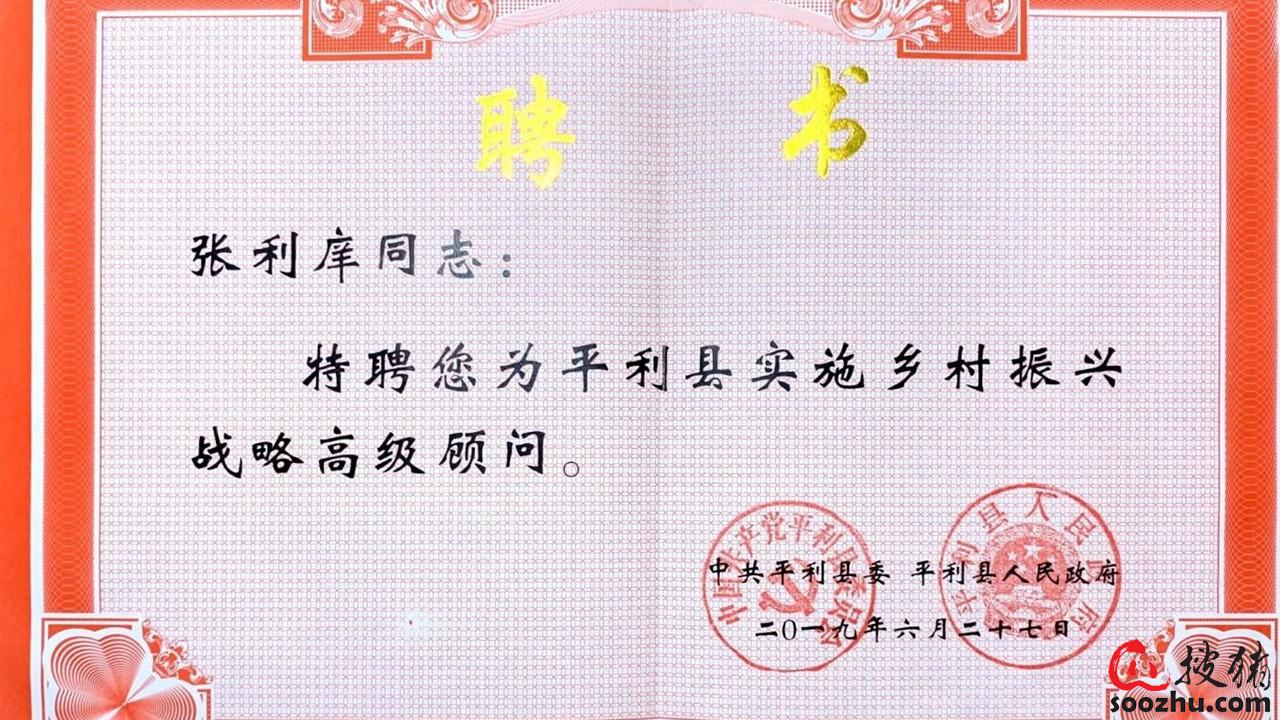 聘 书
张利庠同志：
特聘您为平利县实施乡村振兴
战略高级顾问。
中国共产党平利县委员会
平利县人民政府
中共平利县委 平利县人民政府
二0一九年六月二十七日
搜猪
soozhu.com